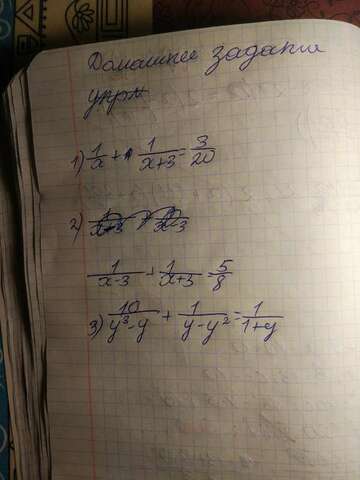 Домашнее задания
упр
1) 1/x + 1/(x+3) = 3/20
2)
1/(x-3) + 1/(x+3) = 5/8
3) 10/(y³-y) + 1/(y-y²) = 1/(1+y)